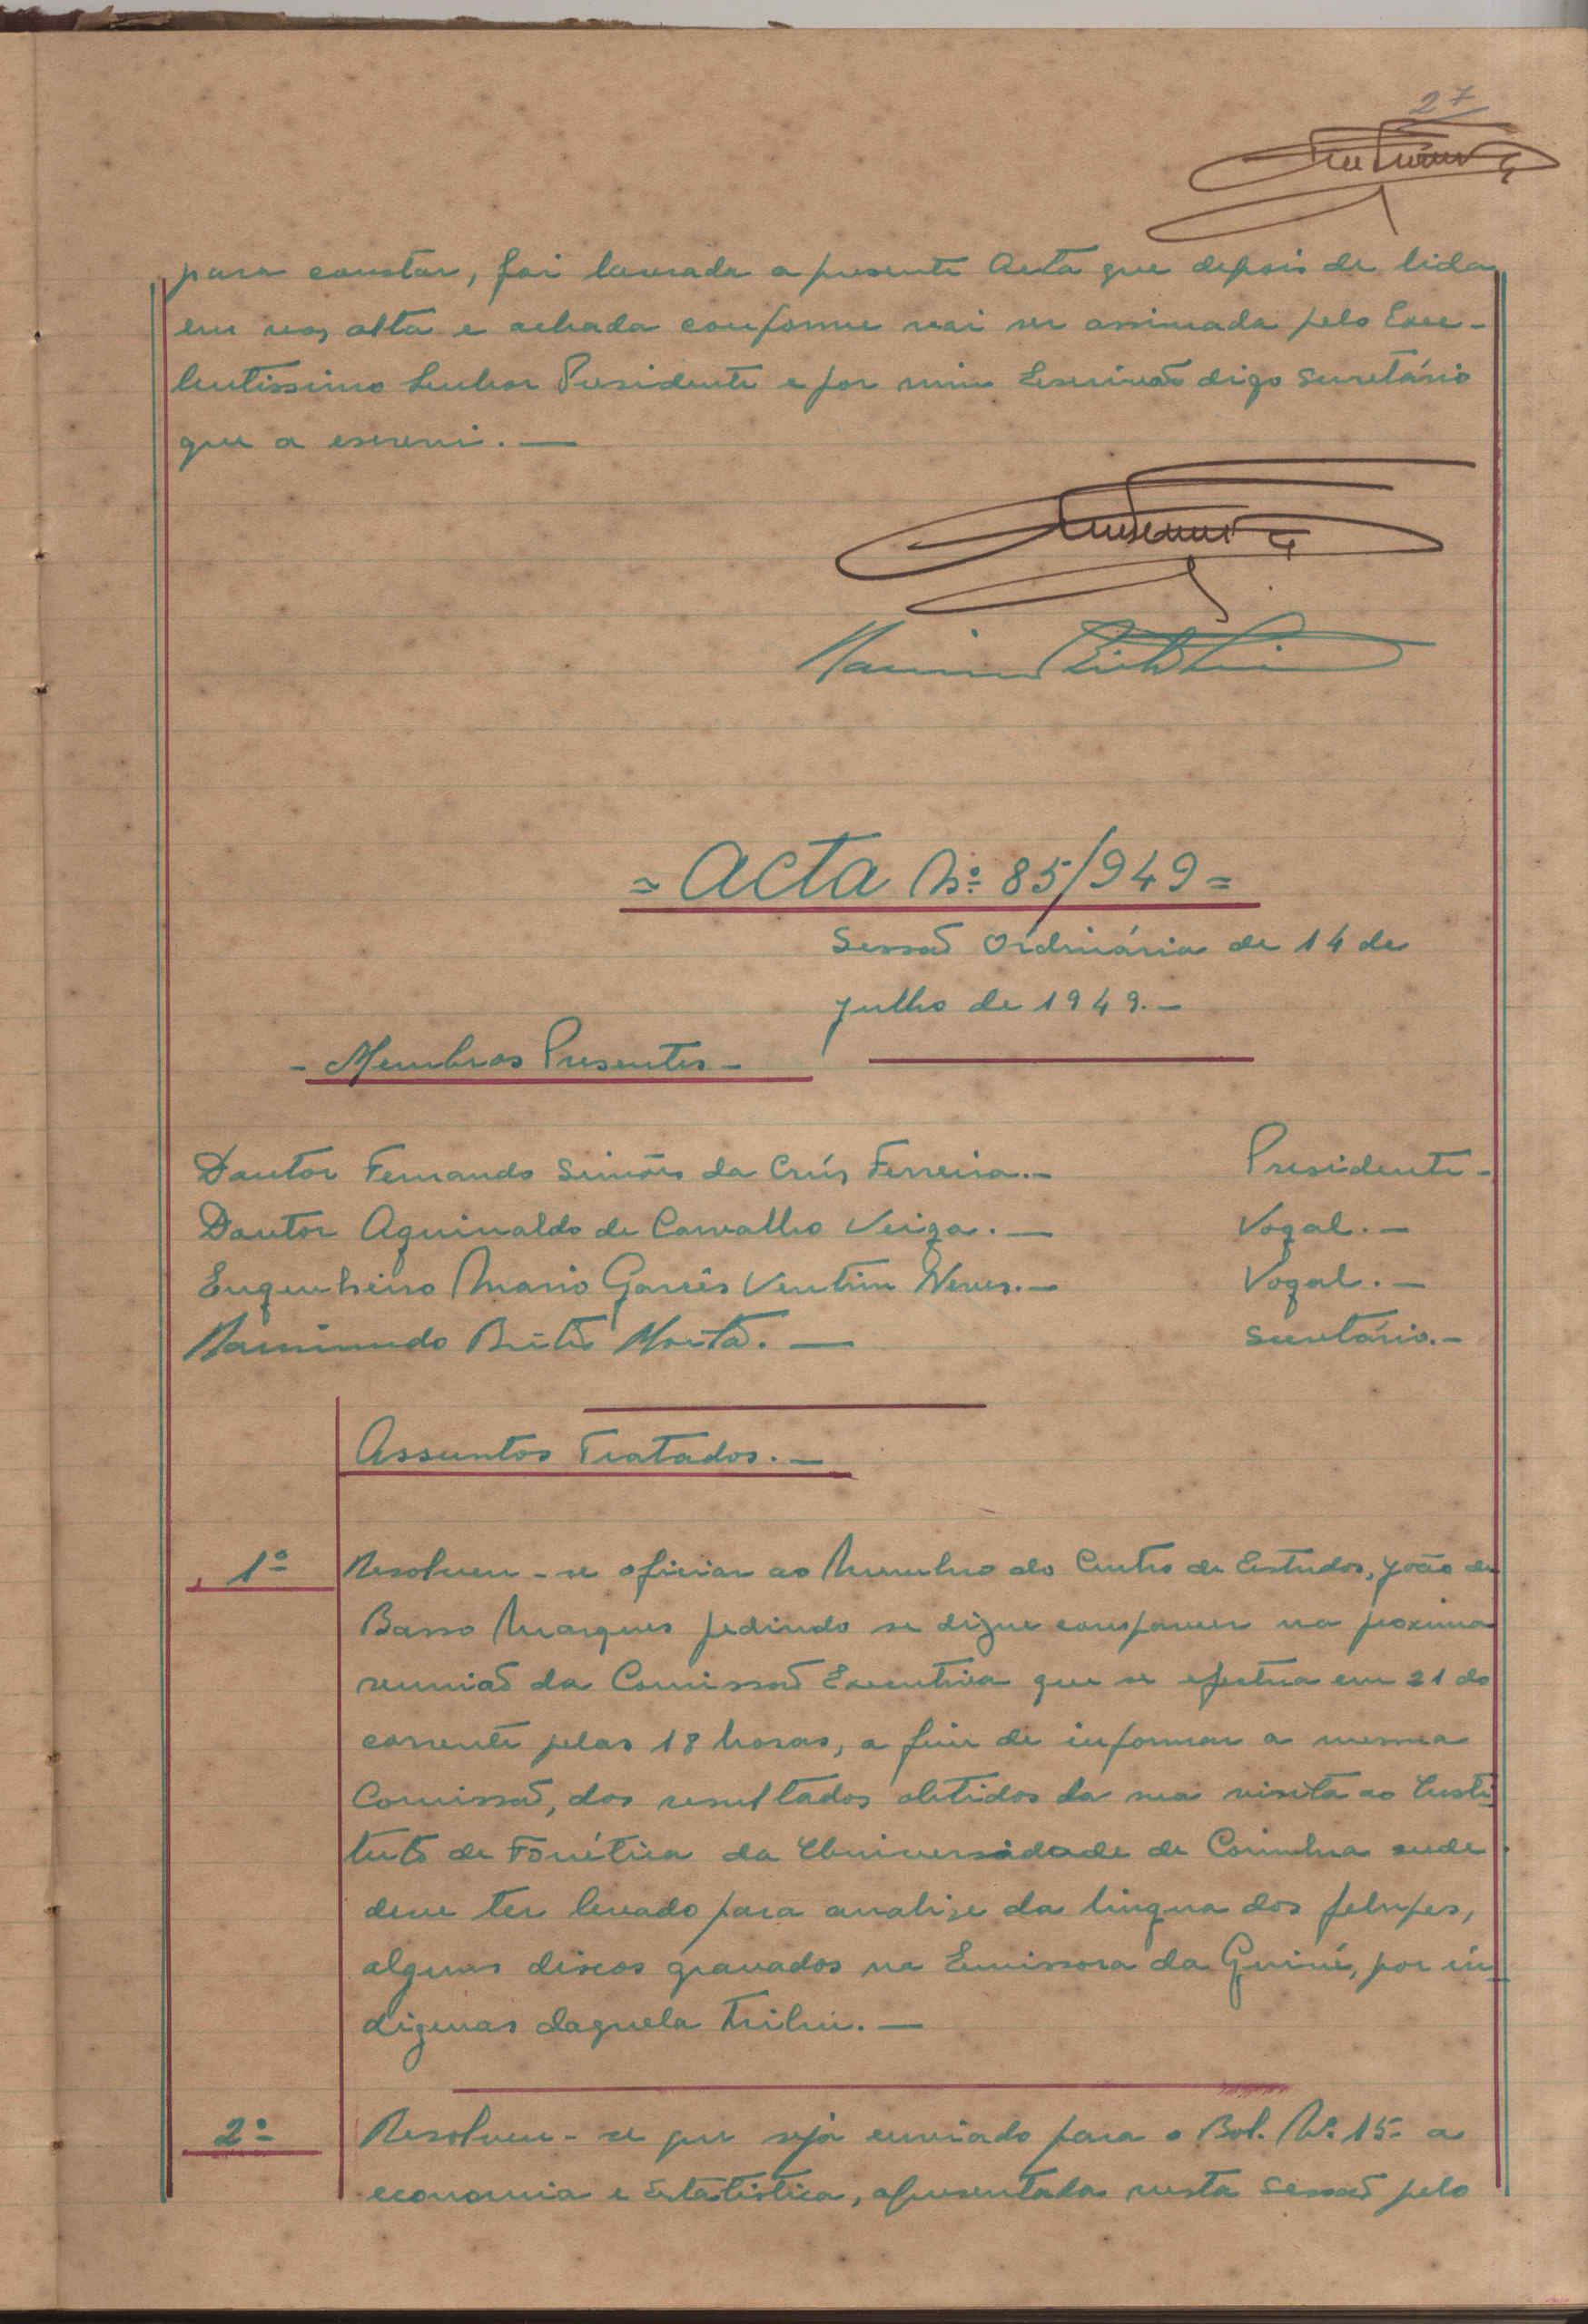 27
para constar, foi lavrada a presente Acta que depois de lida
em voz alta e achada conforme vai ser assinada pelo Exce-
lentissimo Senhor Presidente e por mim Escrivão digo Secretário
que a escrevi. —
= Acta Nº 85/949 =
Sessão Ordinária de 14 de
Julho de 1949. -
- Membros Presentes -
Doutor Fernando Simões da Cruz Ferreira. - Presidente -
Doutor Aguinaldo de Carvalho Veiga. — Vogal. -
Engenheiro Mario Garcês Ventim Neves. - Vogal. -
Raimundo Brito Morta. — Secretário. -
Assuntos Tratados. -
1º Resolveu-se oficiar ao Membro do Centro de Estudos, João de
Basso Marques pedindo se digne comparecer na proxima
reunião da Comissão Executiva que se efectua em 21 do
corrente pelas 18 horas, a fim de informar a mesma
Comissão, dos resultados obtidos da sua visita ao Insti-
tuto de Fonética da Universidade de Coimbra onde
deve ter levado para analize da lingua dos felupes,
alguns discos gravados na Emissora da Guiné, por in-
digenas daquela tribu. —
2º Resolveu-se que seja enviado para o Bol. Nº 15 - a
economia e Estatistica, apresentada nesta Sessão pelo